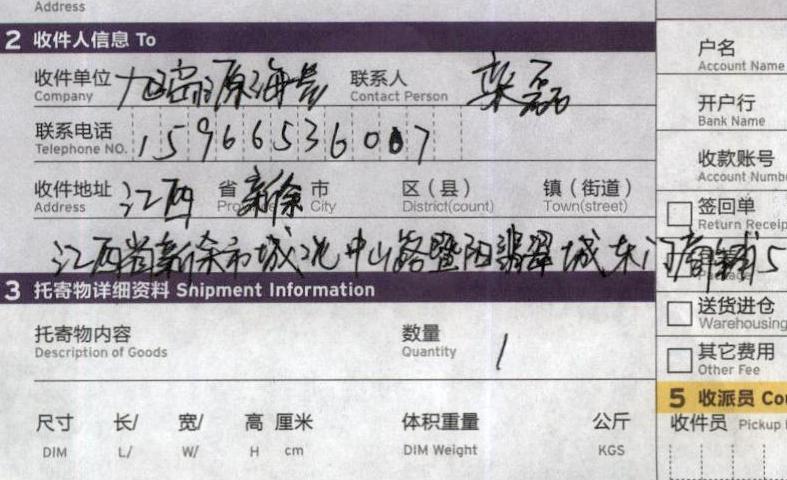 Address
2 收件人信息 To
收件单位 Company
联系人 Contact Person 磊
联系电话 Telephone NO. 15966536007
收件地址 Address 江西 省 Province 新余 市 City 区（县） District(count) 镇（街道） Town(street)
江西省新余市城北中山路暨阳翡翠城东门商铺5
3 托寄物详细资料 Shipment Information
托寄物内容 Description of Goods
数量 Quantity 1
尺寸 长/ 宽/ 高 厘米 体积重量 公斤
DIM L/ W/ H cm DIM Weight KGS
户名
Account Name
开户行
Bank Name
收款账号
Account Numb
签回单
Return Receip
送货进仓
Warehousing
其它费用
Other Fee
5 收派员 Cou
收件员 Pickup